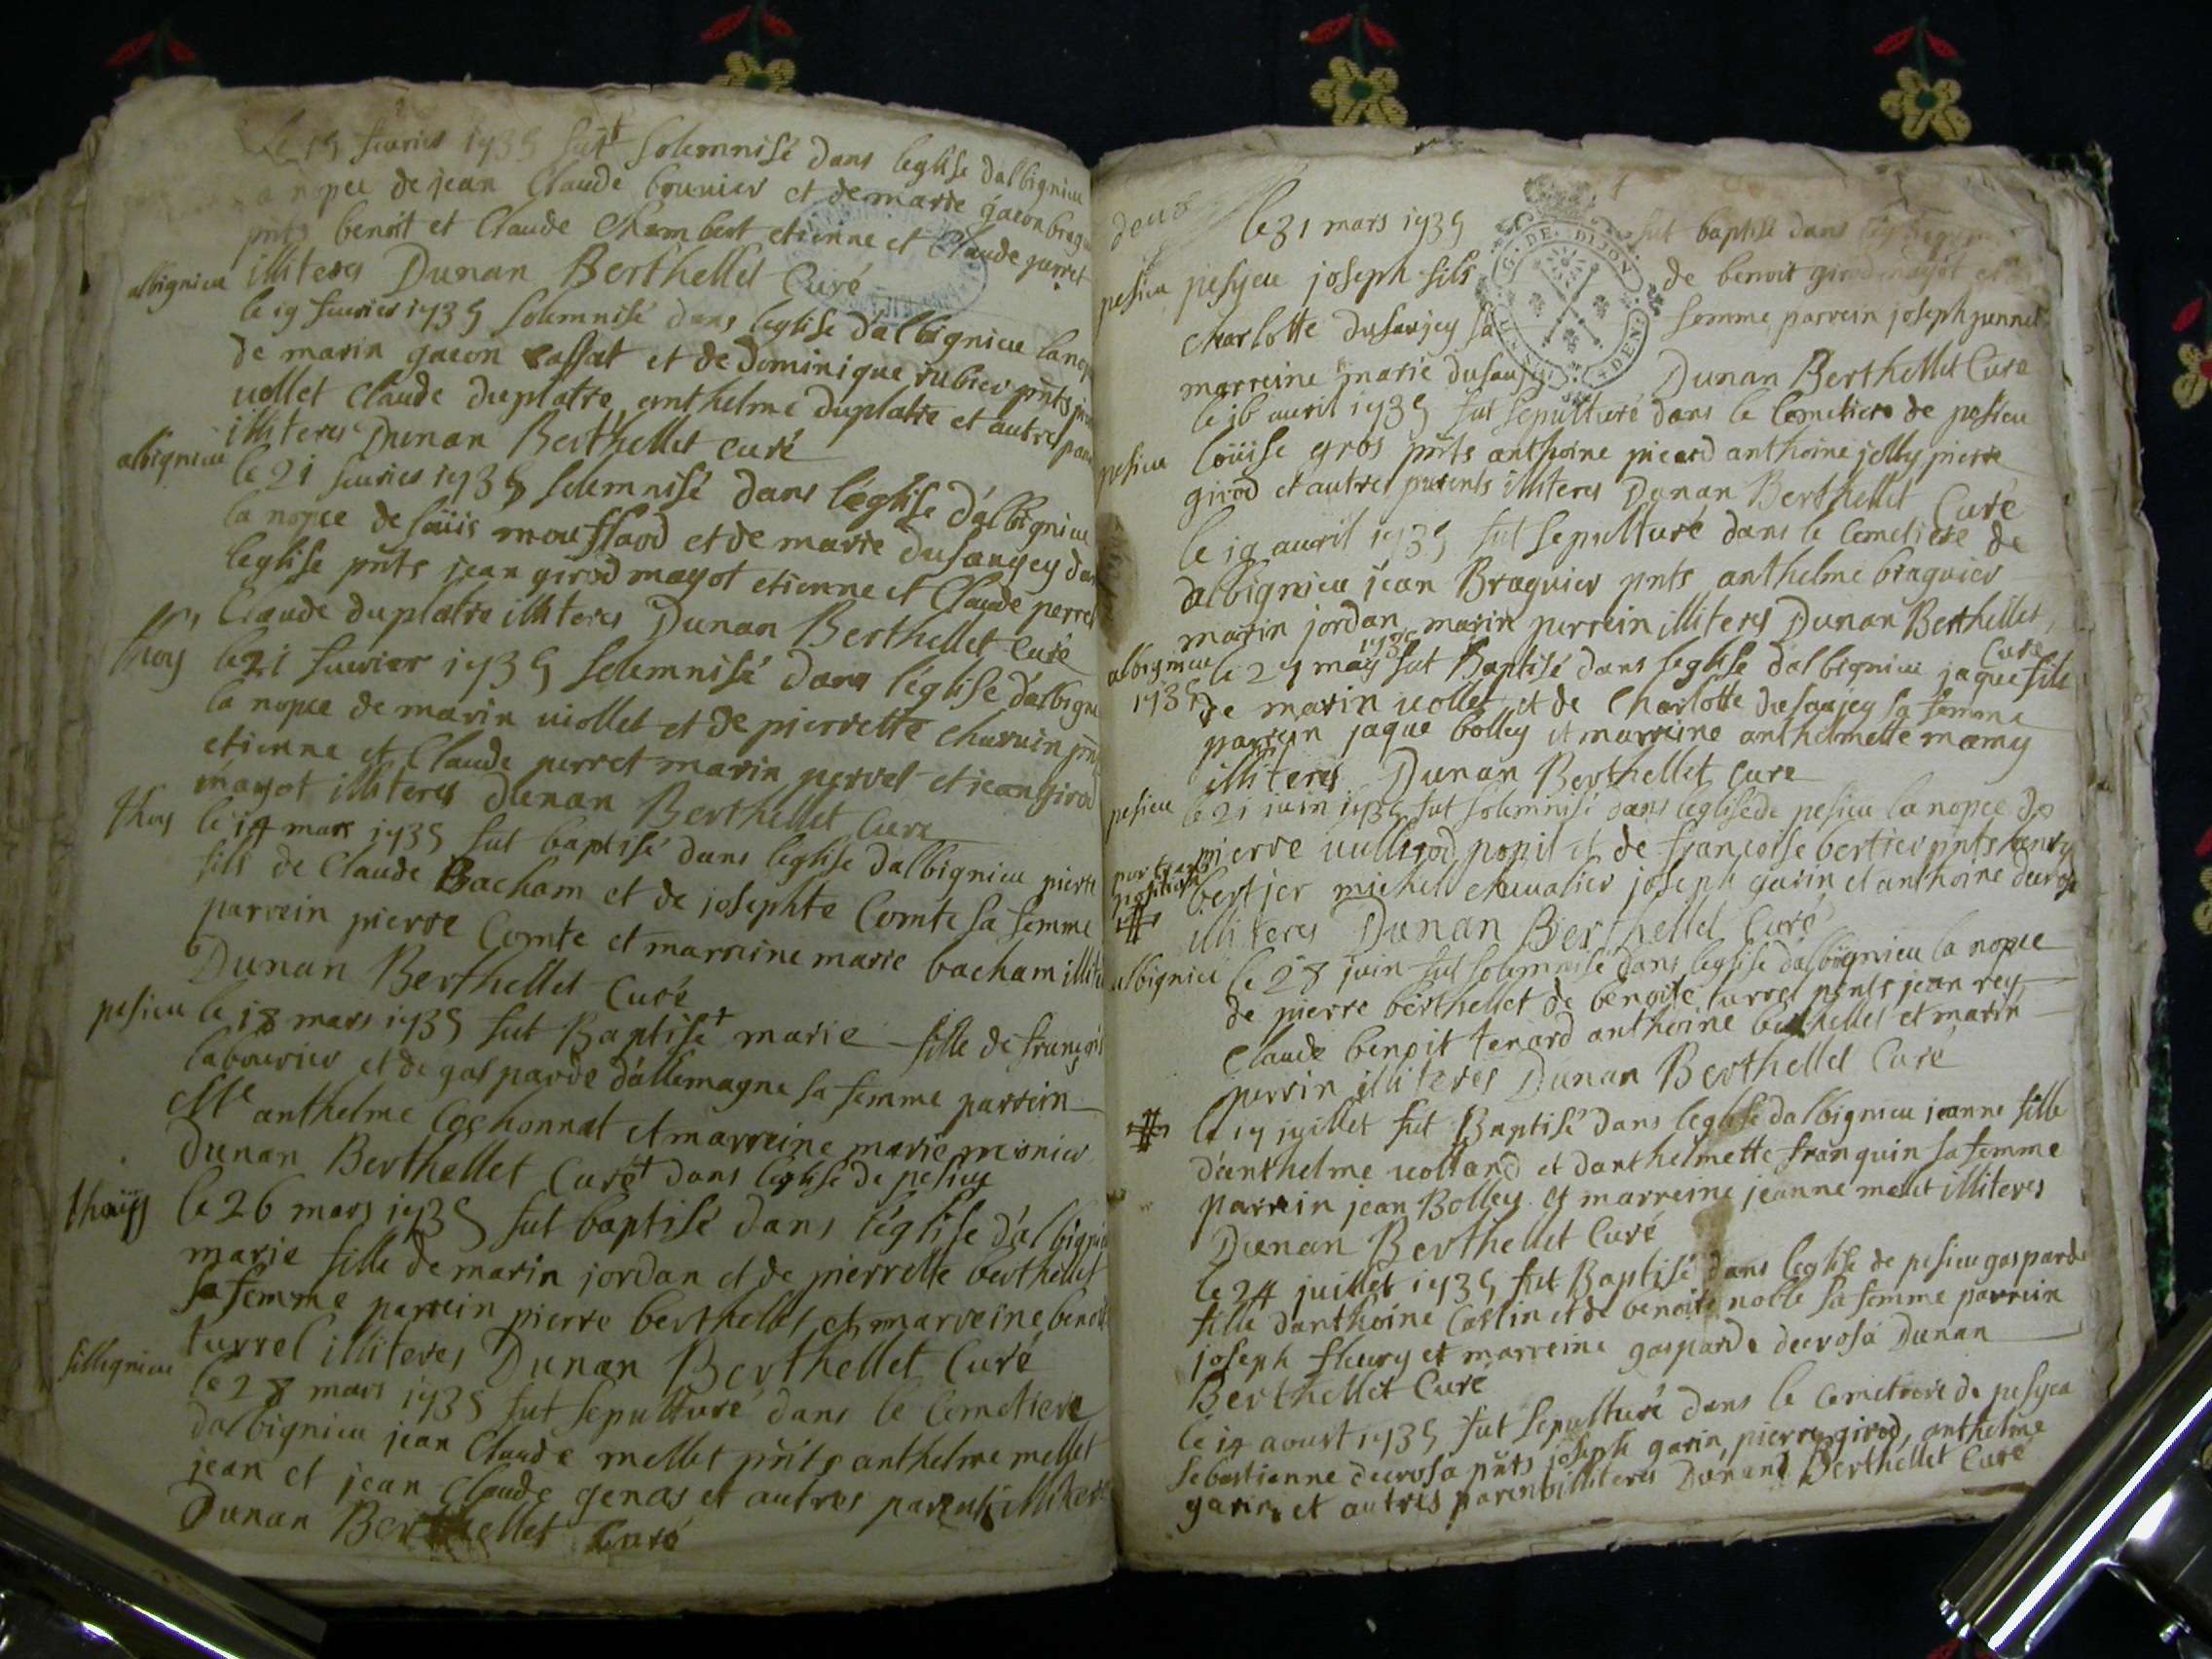 Le 15 feurier 1735 fut solemnisé dans leglise dalbignieu
la nopce de jean Claude bouuier et de marie gacon bragu
pnts benoit et Claude Chambert etienne et Claude perret
illiteres Dunan Berthellet Curé
albignieu
le 19 feurier 1735 solemnisé dans leglise dalbignieu la nop
de marin gacon cassat et de dominique rubier pnts
uollet Claude duplatre anthelme duplatre et autres
illiteres Dunan Berthellet curé
albignieu
le 21 feurier 1735 solemnisé dans léglise dálbignieu
la nopce de loüis moufflard et de marie dusaugey
leglise pnts jean girod mayot etienne et Claude perret
Claude duplatre illiteres Dunan Berthellet Curé
thoy
le 21 feurier 1735 solemnisé dans léglise dálbigni
la nopce de marin uiollet et de pierrette charuin pnts
etienne et Claude perret marin perret et jean girod
mayot illiteres dunan Berthellet Curé
thoy
le 14 mars 1735 fut baptisé dans leglise dalbignieu pierre
fils de Claude Bacham et de josephte Comte sa femme
parrein pierre Comte et marreine marie bacham
Dunan Berthellet Curé
pesieu
le 18 mars 1735 fut Baptisé + marie fille de françois
labourier et de gasparde dállemagne sa femme parrein
Me anthelme Cochonnat et marreine marie
Dunan Berthellet Curé + dans léglise de pesieu
thoüy
le 26 mars 1735 fut baptisé dans léglise dálbignieu
marie fille de marin jordan et de pierrette berthellet
sa femme parrein pierre berthellet et marreine benoite
turrel illiteres Dunan Berthellet Curé
sillignieu
le 28 mars 1735 fut sepulturé dans le Cemetiere
dalbignieu jean Claude mellet pnts anthelme mellet
jean et jean Claude genas et autres parents illiteres
Dunan Berthellet Curé
deux
le 31 mars 1735 fut baptisé dans
pesieu
pesyeu joseph fils de benoit girod mayot et
Charlotte dusaujey sa femme parrein joseph
marreine marie dusaujey Dunan Berthellet Curé
G. DE. DIJON
le 16 auril 1735 fut sepulturé dans le Cemetiere de pesieu
pesieu
loüise gros pnts anthoine picard anthoine jolly pierre
girod et autres parents illiteres Dunan Berthellet Curé
le 19 auril 1735 fut sepulturé dans le Cemetiere de
dalbignieu jean Braguier pnts anthelme braguier
marin jordan marin perrein illiteres Dunan Berthellet
Curé
albignieu
1735
le 27 may 1735 fut Baptisé dans leglise dalbignieu jaque fils
de marin uollet et de Charlotte dusaujey sa femme
parrein jaque bolley et marreine anthelmette mamy
illiteres Dunan Berthellet Curé
pesieu
le 21 iuin 1735 fut solemnisé dans leglise de pesieu la nopce de
pierre uulliod popil et de françoise bertier pnts
bertjer michel cheualier joseph garin et anthoine decrosa
illiteres Dunan Berthellet Curé
albignieu
le 28 juin fut solemnisé dans leglise dalbignieu la nopce
de pierre berthellet de benoite turrel pnts jean rey
Claude benoit tenard anthoine berthellet et marin
perrin illiteres Dunan Berthellet Curé
le 17 jyillet fut Baptisé dans leglise dalbignieu jeanne fille
dánthelme uolland et danthelmette franquin sa femme
parrein jean Bolley et marreine jeanne mellet illiteres
Dunan Berthellet Curé
le 24 juillet 1735 fut Baptisé dans leglise de pesieu gasparde
fille danthoine Carlin et de benoite nolle sa femme parrein
joseph fleury et marreine gasparde decrosa Dunan
Berthellet Curé
le 14 aoust 1735 fut sepulturé dans le Cemetiere de pesyeu
sebastienne decrosa pnts joseph garin, pierre girod, anthelme
garin et autres parents illiteres Dunand Berthellet Curé